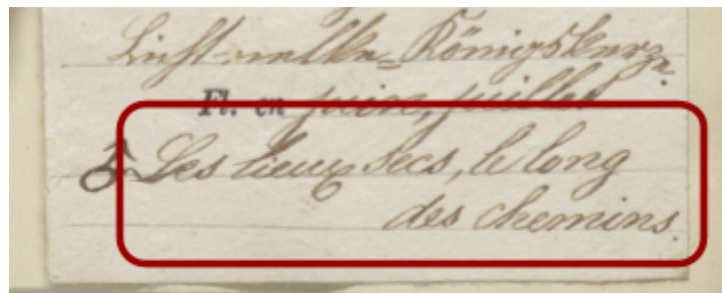 Licht-nelke= Königskerze.
Fl. en juin, juillet
Les lieux secs, le long
des chemins.